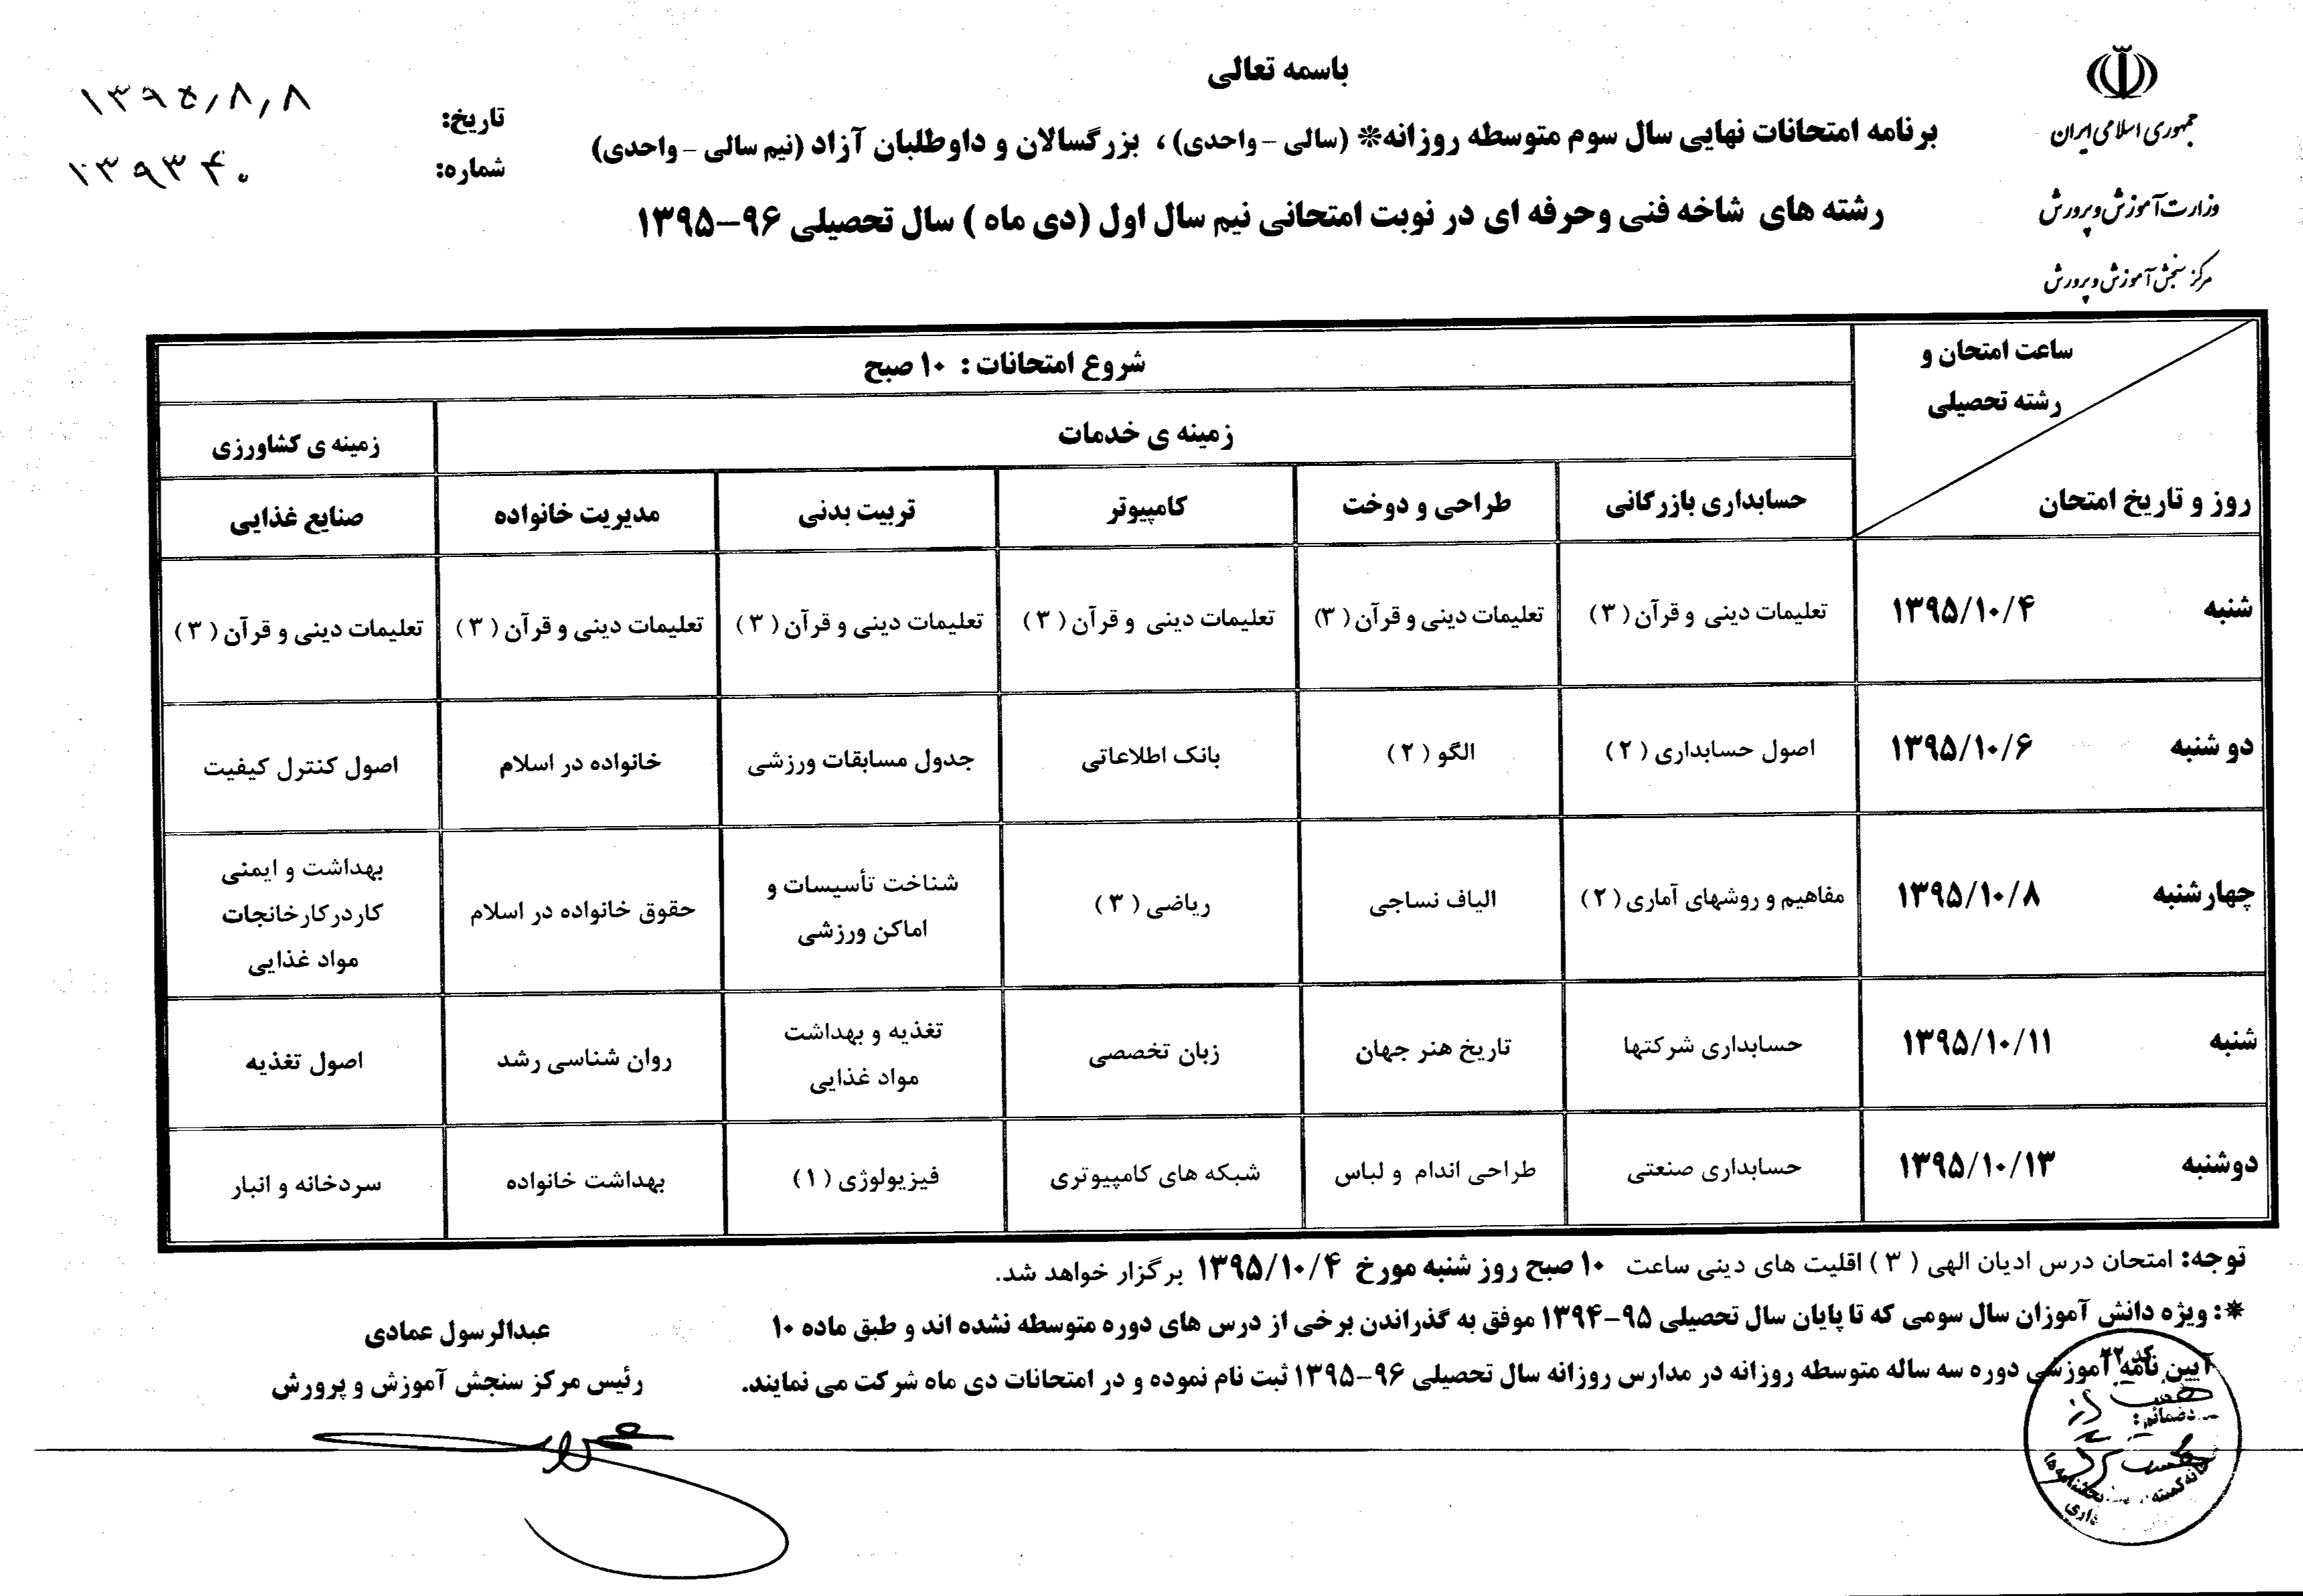 باسمه تعالی
جمهوری اسلامی ایران
وزارت آموزش و پرورش
مرکز سنجش آموزش و پرورش
برنامه امتحانات نهایی سال سوم متوسطه روزانه* (سالی – واحدی) ، بزرگسالان و داوطلبان آزاد (نیم سالی – واحدی)
رشته های شاخه فنی وحرفه ای در نوبت امتحانی نیم سال اول (دی ماه ) سال تحصیلی ۹۶–۱۳۹۵
تاریخ: ۱۳۹۵/۸/۸
شماره: ۱۳۹۳۴۰
ساعت امتحان و
رشته تحصیلی
روز و تاریخ امتحان
شروع امتحانات : ۱۰ صبح
زمینه ی خدمات
زمینه ی کشاورزی
حسابداری بازرگانی
طراحی و دوخت
کامپیوتر
تربیت بدنی
مدیریت خانواده
صنایع غذایی
شنبه ۱۳۹۵/۱۰/۴
تعلیمات دینی و قرآن ( ۳ )
تعلیمات دینی و قرآن ( ۳)
تعلیمات دینی و قرآن ( ۳ )
تعلیمات دینی و قرآن ( ۳ )
تعلیمات دینی و قرآن ( ۳ )
تعلیمات دینی و قرآن ( ۳ )
دو شنبه ۱۳۹۵/۱۰/۶
اصول حسابداری ( ۲ )
الگو ( ۲ )
بانک اطلاعاتی
جدول مسابقات ورزشی
خانواده در اسلام
اصول کنترل کیفیت
چهارشنبه ۱۳۹۵/۱۰/۸
مفاهیم و روشهای آماری ( ۲ )
الیاف نساجی
ریاضی ( ۳ )
شناخت تأسیسات و
اماکن ورزشی
حقوق خانواده در اسلام
بهداشت و ایمنی
کاردرکارخانجات
مواد غذایی
شنبه ۱۳۹۵/۱۰/۱۱
حسابداری شرکتها
تاریخ هنر جهان
زبان تخصصی
تغذیه و بهداشت
مواد غذایی
روان شناسی رشد
اصول تغذیه
دوشنبه ۱۳۹۵/۱۰/۱۳
حسابداری صنعتی
طراحی اندام و لباس
شبکه های کامپیوتری
فیزیولوژی ( ۱ )
بهداشت خانواده
سردخانه و انبار
توجه: امتحان درس ادیان الهی ( ۳ ) اقلیت های دینی ساعت ۱۰ صبح روز شنبه مورخ ۱۳۹۵/۱۰/۴ برگزار خواهد شد.
*: ویژه دانش آموزان سال سومی که تا پایان سال تحصیلی ۹۵–۱۳۹۴ موفق به گذراندن برخی از درس های دوره متوسطه نشده اند و طبق ماده ۱۰
آیین نامه آموزشی دوره سه ساله متوسطه روزانه در مدارس روزانه سال تحصیلی ۹۶–۱۳۹۵ ثبت نام نموده و در امتحانات دی ماه شرکت می نمایند.
عبدالرسول عمادی
رئیس مرکز سنجش آموزش و پرورش
کد ۴۲